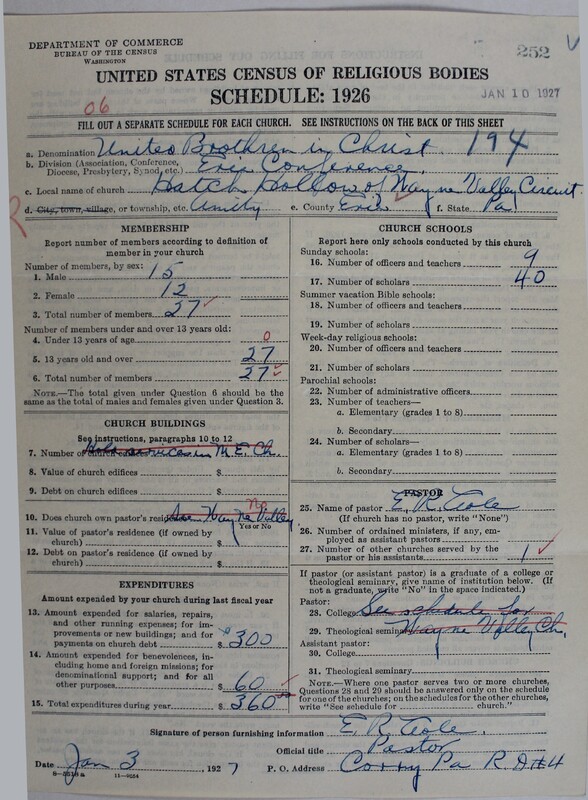 DEPARTMENT OF COMMERCE
BUREAU OF THE CENSUS
WASHINGTON
252
UNITED STATES CENSUS OF RELIGIOUS BODIES
SCHEDULE: 1926
JAN 10 1927
06
FILL OUT A SEPARATE SCHEDULE FOR EACH CHURCH. SEE INSTRUCTIONS ON THE BACK OF THIS SHEET
a. Denomination United Brothren in Christ 194
b. Division (Association, Conference, Diocese, Presbytery, Synod, etc.) Erie Conference
c. Local name of church Hatch Hollow of Wayne Valley Circuit
d. City, town, village, or township, etc. Amity e. County Erie f. State Pa
MEMBERSHIP
Report number of members according to definition of member in your church
Number of members, by sex:
1. Male 15
2. Female 12
3. Total number of members 27
Number of members under and over 13 years old:
4. Under 13 years of age 0
5. 13 years old and over 27
6. Total number of members 27
NOTE.—The total given under Question 6 should be the same as the total of males and females given under Question 3.
CHURCH BUILDINGS
See instructions, paragraphs 10 to 12
7. Number of church Hold services in M. E. Ch.
8. Value of church edifices $
9. Debt on church edifices $
10. Does church own pastor's residence See Wayne Valley No
Yes or No
11. Value of pastor's residence (if owned by church) $
12. Debt on pastor's residence (if owned by church) $
EXPENDITURES
Amount expended by your church during last fiscal year
13. Amount expended for salaries, repairs, and other running expenses; for improvements or new buildings; and for payments on church debt $300
14. Amount expended for benevolences, including home and foreign missions; for denominational support; and for all other purposes $60
15. Total expenditures during year $360
CHURCH SCHOOLS
Report here only schools conducted by this church
Sunday schools:
16. Number of officers and teachers 9
17. Number of scholars 40
Summer vacation Bible schools:
18. Number of officers and teachers
19. Number of scholars
Week-day religious schools:
20. Number of officers and teachers
21. Number of scholars
Parochial schools:
22. Number of administrative officers
23. Number of teachers—
a. Elementary (grades 1 to 8)
b. Secondary
24. Number of scholars—
a. Elementary (grades 1 to 8)
b. Secondary
PASTOR
25. Name of pastor E. R. Cole
(If church has no pastor, write "None")
26. Number of ordained ministers, if any, employed as assistant pastors
27. Number of other churches served by the pastor or his assistants 1
If pastor (or assistant pastor) is a graduate of a college or theological seminary, give name of institution below. (If not a graduate, write "No" in the space indicated.)
Pastor:
28. College See schedule for
29. Theological seminary Wayne Valley Ch.
Assistant pastor:
30. College
31. Theological seminary
NOTE.—Where one pastor serves two or more churches, Questions 28 and 29 should be answered only on the schedule for one of the churches; on the schedules for the other churches, write "See schedule for ______ church."
Signature of person furnishing information E. R. Cole
Official title Pastor
Date Jan 3 1927 P. O. Address Corry Pa R. D #4
11—9254